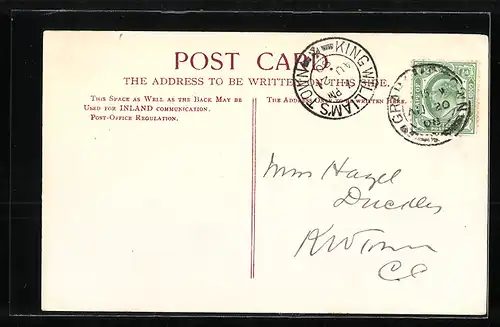 POST CARD.
THE ADDRESS TO BE WRITTEN ON THIS SIDE.
This Space as Well as the Back May be
Used for INLAND communication.
Post-Office Regulation.
The Address Only to be Written Here.
KING WILLIAM'S TOWN
PM
Miss Hazel
Dudley
KWTown
CC